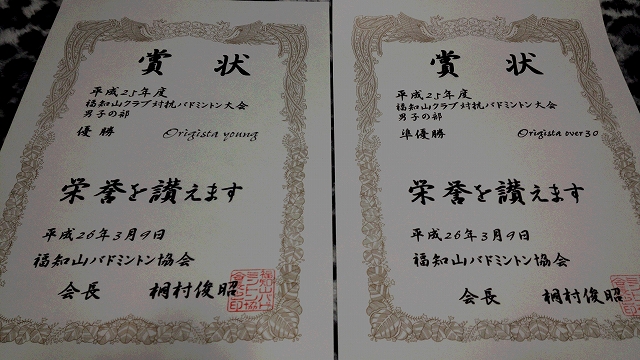 賞状
平成25年度
福知山クラブ対抗バドミントン大会
男子の部
優勝 Origista young
栄誉を讃えます
平成26年3月9日
福知山バドミントン協会
会長 桐村俊昭
賞状
平成25年度
福知山クラブ対抗バドミントン大会
男子の部
準優勝 Origista over30
栄誉を讃えます
平成26年3月9日
福知山バドミントン協会
会長 桐村俊昭